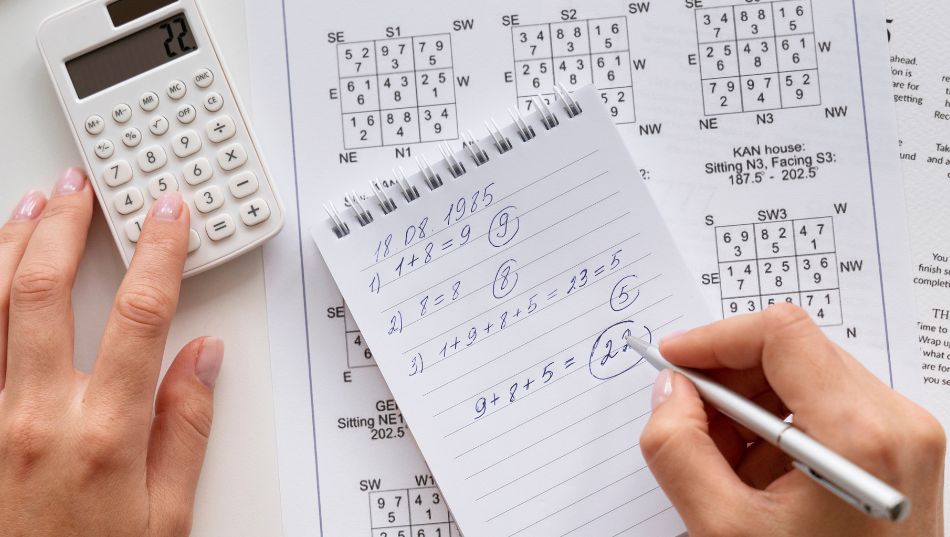 22
ON/C
MC
MR
M-
M+
CE
OFF
√
%
+/-
÷
9
8
7
×
6
5
4
−
3
1
+
=
SE S1 SW
5 2 7 9 7 3 7 9 5
E 6 1 6 4 3 8 2 5 1 W
1 6 2 8 8 4 3 4 9
NE N1
SE S2 SW
3 4 7 8 8 3 1 6 5
2 5 6 4 3 8 6 1 W
5 2
NW
SE SW
3 4 7 8 8 3 1 6 5
E 2 5 6 4 3 8 6 1 6 W
7 9 2 9 7 4 5 2 9
NE N3 NW
KAN house:
Sitting N3, Facing S3:
187.5° - 202.5°
S SW3 W
6 9 3 8 2 5 4 7 1
SE 1 4 7 2 5 8 3 6 9 NW
9 3 5 8 7 4 1
N
18.08.1985
1) 1+8=9 9
2) 8=8 8
3) 1+9+8+5=23=5
5
9+8+5= 22
SE
4 6
E
Sitting NE1
202.5°
SW W1
9 7 5 4 3 1
ahead.
on is
are for
getting
Rec
Tak
and a
You
finish s
completi
TH
Time to
Wrap up
what c
are for
you se